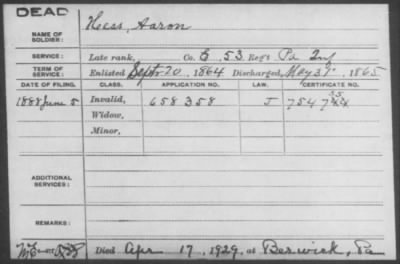 DEAD
NAME OF SOLDIER: Hess, Aaron
SERVICE: Late rank, Co. E, 53 Reg't Pa Inf
TERM OF SERVICE: Enlisted Sept 20, 1864 Discharged, May 31, 1865
DATE OF FILING. CLASS. APPLICATION NO. LAW. CERTIFICATE NO.
1888 June 5 Invalid, 658 358 J 754 7
Widow,
Minor,
ADDITIONAL SERVICES:
REMARKS:
Died Apr 17, 1929, at Berwick, Pa